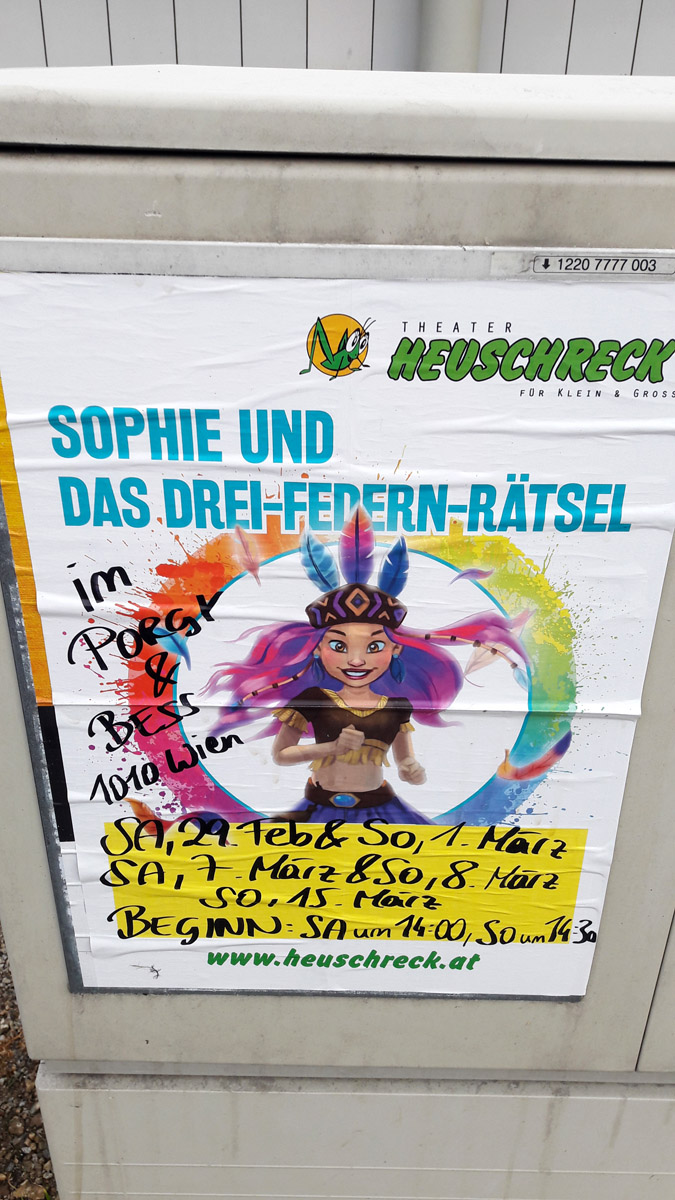 ⬇ 1220 7777 003
THEATER
HEUSCHRECK
FÜR KLEIN & GROSS
SOPHIE UND
DAS DREI-FEDERN-RÄTSEL
im
PORGY
&
BESS
1010 Wien
SA, 29. Feb & So, 1. März
SA, 7. März & So, 8. März
SO, 15. März
BEGINN: SA um 14:00, SO um 14:30
www.heuschreck.at